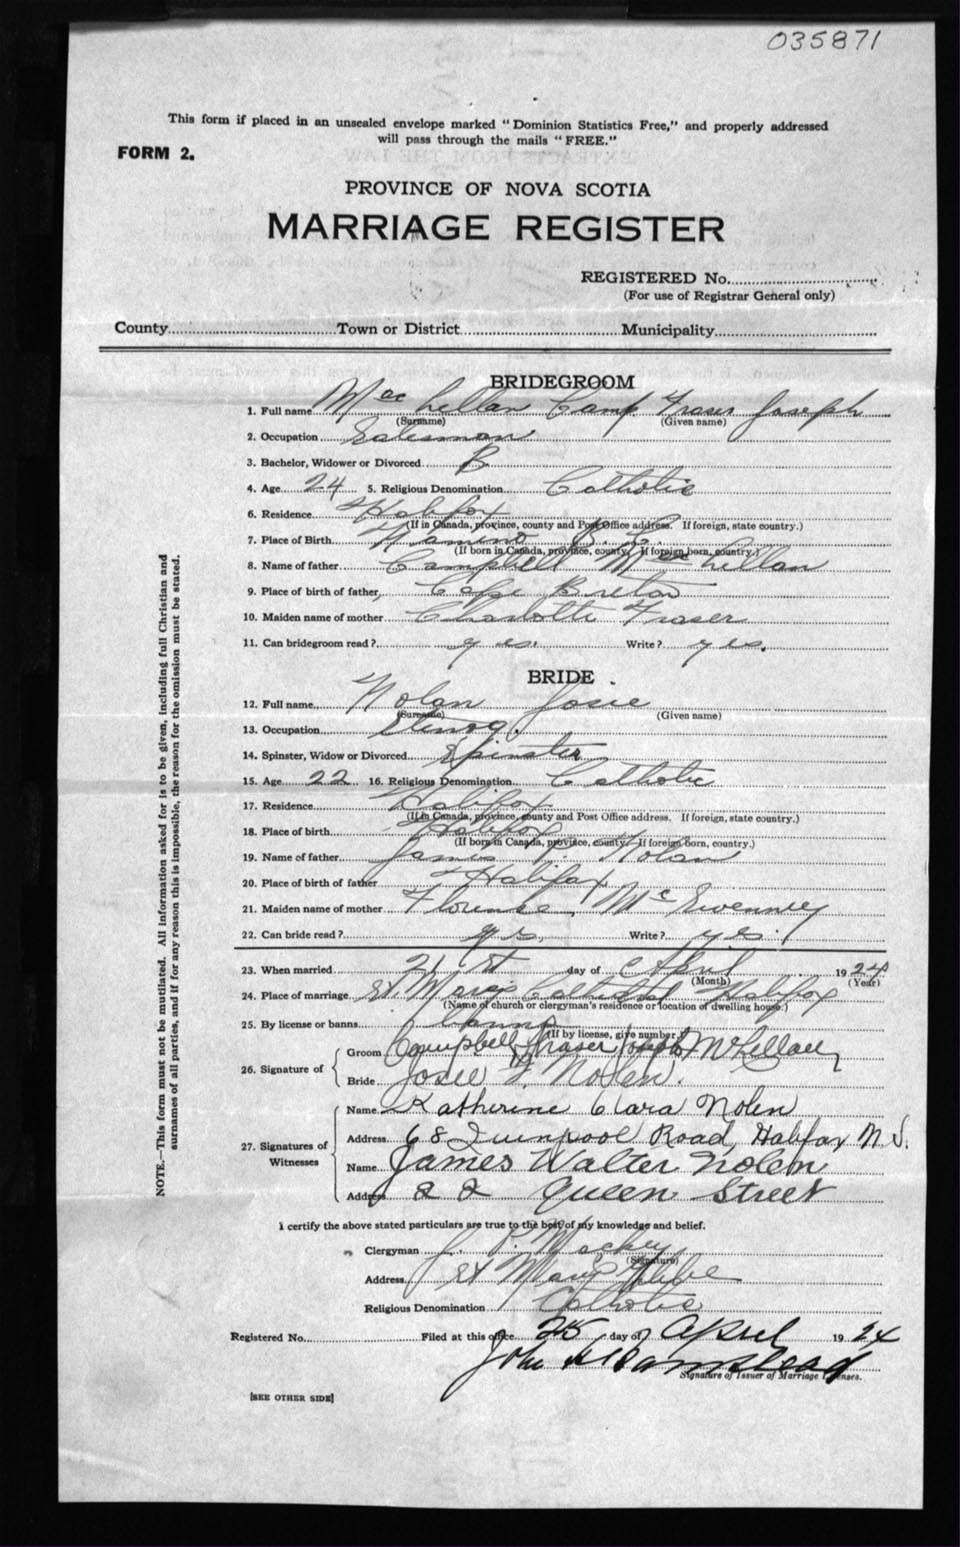 035871
This form if placed in an unsealed envelope marked "Dominion Statistics Free," and properly addressed
will pass through the mails "FREE."
FORM 2.
PROVINCE OF NOVA SCOTIA
MARRIAGE REGISTER
REGISTERED No.
(For use of Registrar General only)
County Town or District Municipality
BRIDEGROOM
1. Full name Mac Lellan Camp. Fraser Joseph
(Surname) (Given name)
2. Occupation Salesman
3. Bachelor, Widower or Divorced B.
4. Age 24 5. Religious Denomination Catholic
6. Residence Halifax
(If in Canada, province, county and Post Office address. If foreign, state country.)
7. Place of Birth B. C.
(If born in Canada, province, county. If foreign born, country.)
8. Name of father Campbell Mac Lellan
9. Place of birth of father Cape Breton
10. Maiden name of mother Charlotte Fraser
11. Can bridegroom read? yes. Write? yes.
BRIDE
12. Full name Nolan Josie
(Surname) (Given name)
13. Occupation Stenog.
14. Spinster, Widow or Divorced Spinster
15. Age 22 16. Religious Denomination Catholic
17. Residence Halifax
(If in Canada, province, county and Post Office address. If foreign, state country.)
18. Place of birth Halifax
(If born in Canada, province, county. If foreign born, country.)
19. Name of father James P. Nolan
20. Place of birth of father Halifax
21. Maiden name of mother Florence Mc Swenney
22. Can bride read? yes. Write? yes.
23. When married 21st day of April 1924
(Month) (Year)
24. Place of marriage St. Mary's Cathedral Halifax
(Name of church or clergyman's residence or location of dwelling house.)
25. By license or banns banns
(If by license, give number.)
26. Signature of
Groom Campbell Fraser Joseph McLellan
Bride Josie F. Nolen.
27. Signatures of Witnesses
Name Katherine Clara Nolen
Address 68 Quinpool Road, Halifax N.S.
Name James Walter Nolen
Address 22 Queen Street
I certify the above stated particulars are true to the best of my knowledge and belief.
Clergyman J. P. Mackey
(Signature)
Address St Marys Glebe
Religious Denomination Catholic
Registered No. Filed at this office 25 day of April 1924
John
Signature of Issuer of Marriage Licenses.
[SEE OTHER SIDE]
NOTE.—This form must not be mutilated. All information asked for is to be given, including full Christian and
surnames of all parties, and if for any reason this is impossible, the reason for the omission must be stated.